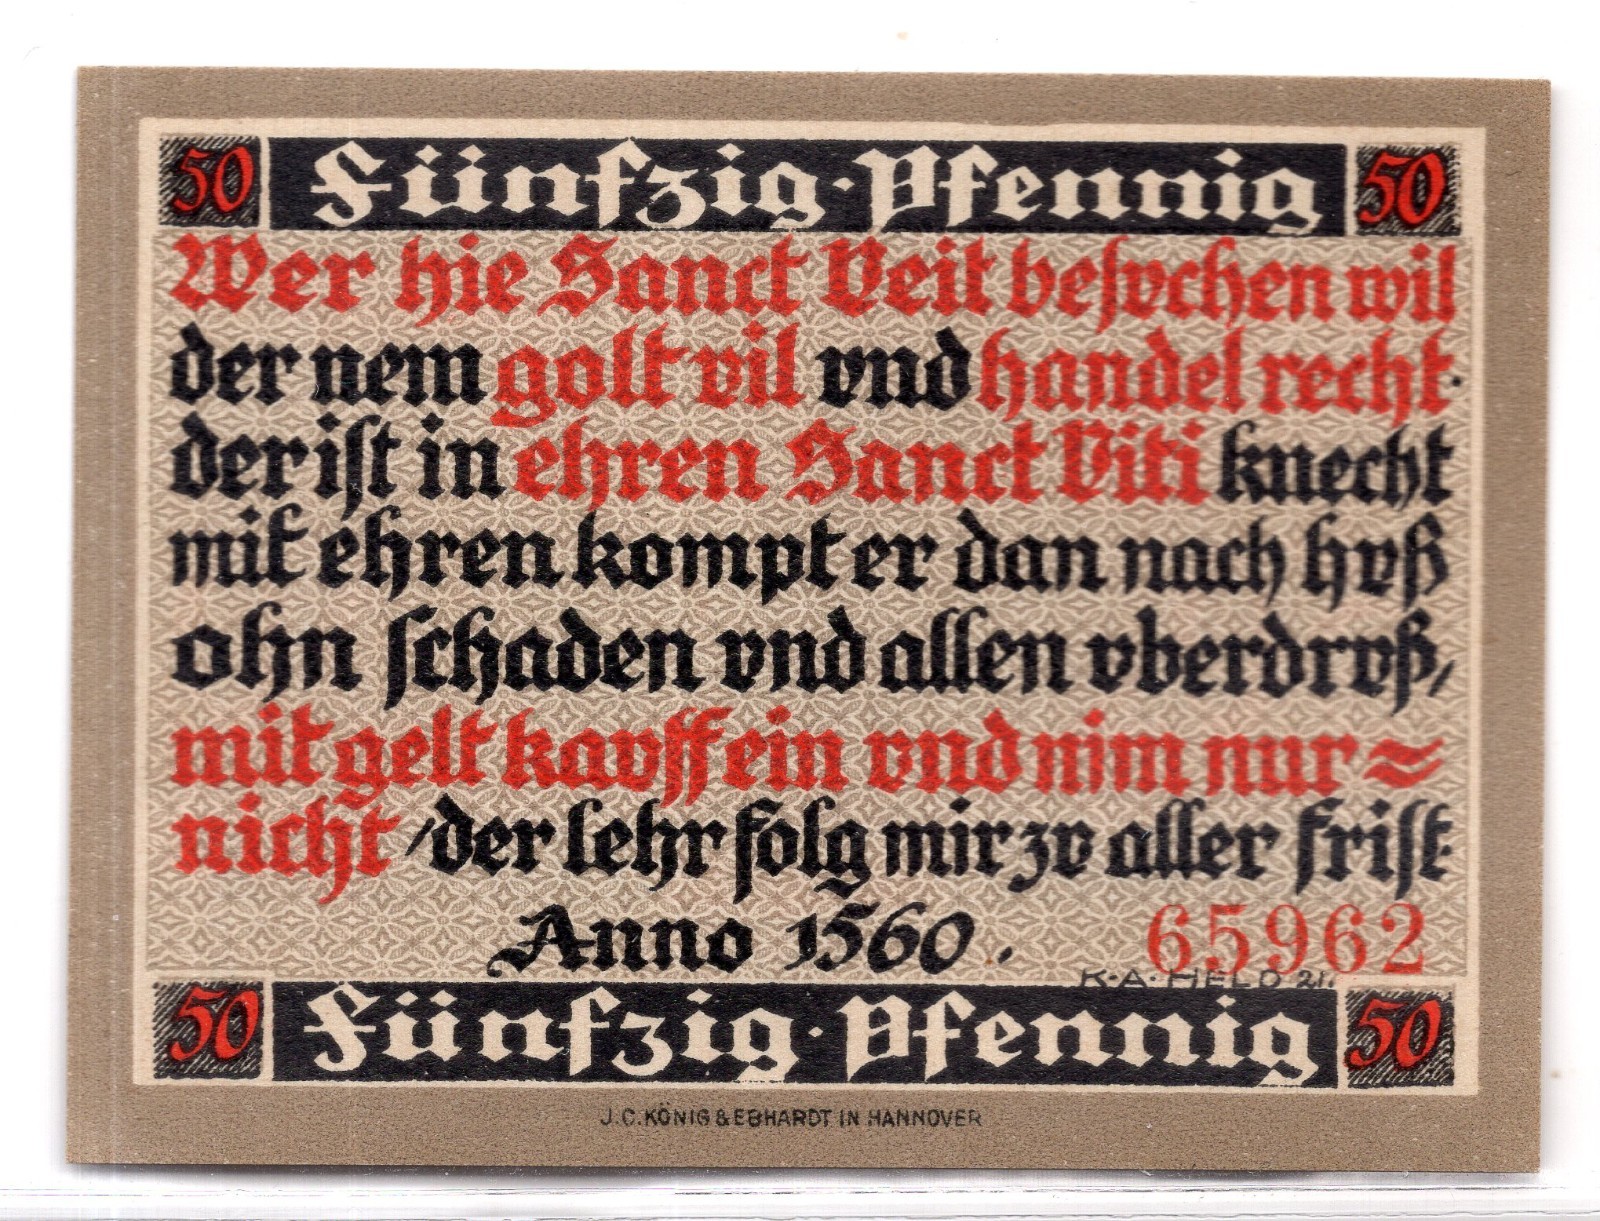 50 Fünfzig·Pfennig 50
Wer hie Sanct Veit besvchen wil
der nem golt vil vnd handel recht·
der ist in ehren Sanct Viti knecht
mit ehren kompt er dan nach hvß
ohn schaden vnd allen vberdrvß,
mit gelt kavff ein vnd nim nur
nicht / der lehr folg mir zv aller frist·
Anno 1560.
65962
K·A·HELD 21.
50 Fünfzig·Pfennig 50
J.C.KÖNIG & EBHARDT IN HANNOVER